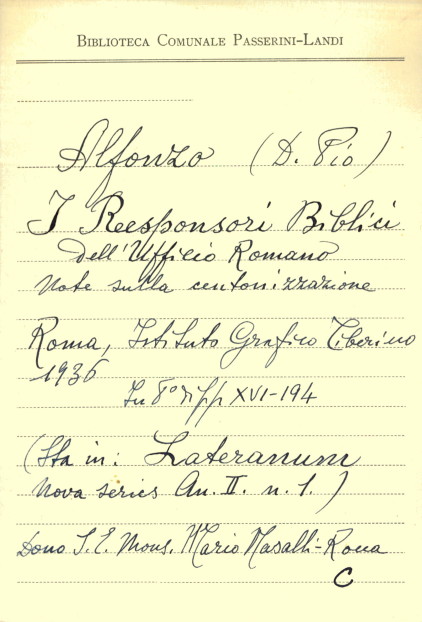 BIBLIOTECA COMUNALE PASSERINI-LANDI
Alfonzo (D. Pio)
I Responsori Biblici
dell'Ufficio Romano
Note sulla centonizzazione
Roma, Istituto Grafico Tiberino
1936
In 8° di pp XVI-194
(Sta in: Lateranum
Nova series An. II. n. 1.)
Dono S. E. Mons. Mario Nasalli-Roca
C